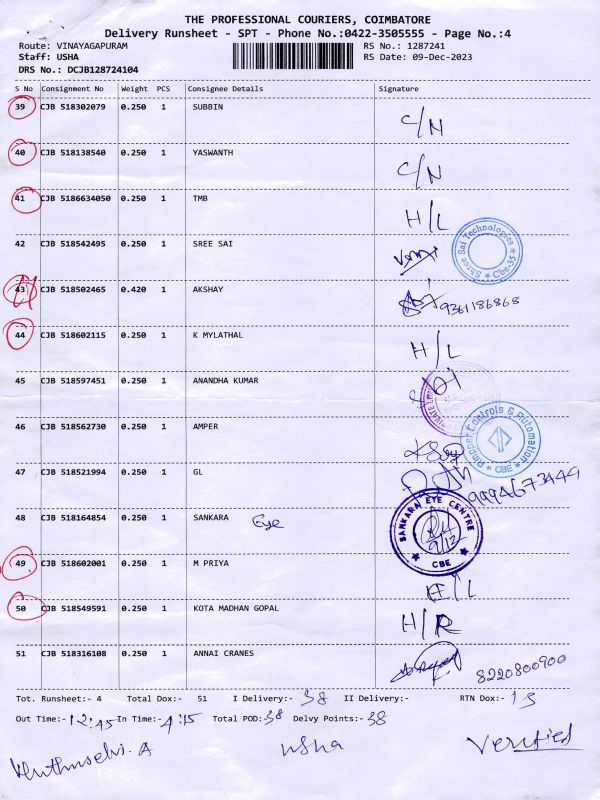 THE PROFESSIONAL COURIERS, COIMBATORE
Delivery Runsheet - SPT - Phone No.:0422-3505555 - Page No.:4
Route: VINAYAGAPURAM RS No.: 1287241
Staff: USHA RS Date: 09-Dec-2023
DRS No.: DCJB128724104
S No Consignment No Weight PCS Consignee Details Signature
39 CJB 518302079 0.250 1 SUBBIN C/N
40 CJB 518138540 0.250 1 YASWANTH C/N
41 CJB 5186634050 0.250 1 TMB H/L
42 CJB 518542495 0.250 1 SREE SAI Shree Sai Technologies * Cbe-35 *
43 CJB 518502465 0.420 1 AKSHAY 9361186868
44 CJB 518602115 0.250 1 K MYLATHAL H/L
45 CJB 518597451 0.250 1 ANANDHA KUMAR
46 CJB 518562730 0.250 1 AMPER Ampper Controls & Automation * CBE *
47 CJB 518521994 0.250 1 GL
48 CJB 518164854 0.250 1 SANKARA Eye SANKARA EYE CENTRE * CBE * 9/12
49 CJB 518602001 0.250 1 M PRIYA H/L
50 CJB 518549591 0.250 1 KOTA MADHAN GOPAL H/R
51 CJB 518316108 0.250 1 ANNAI CRANES 8220800900
Tot. Runsheet:- 4 Total Dox:- 51 I Delivery:- 38 II Delivery:- RTN Dox:- 13
Out Time:- 12:45 In Time:- 4:15 Total POD: 38 Delvy Points:- 38
Muthuselvi. A Usha Verified